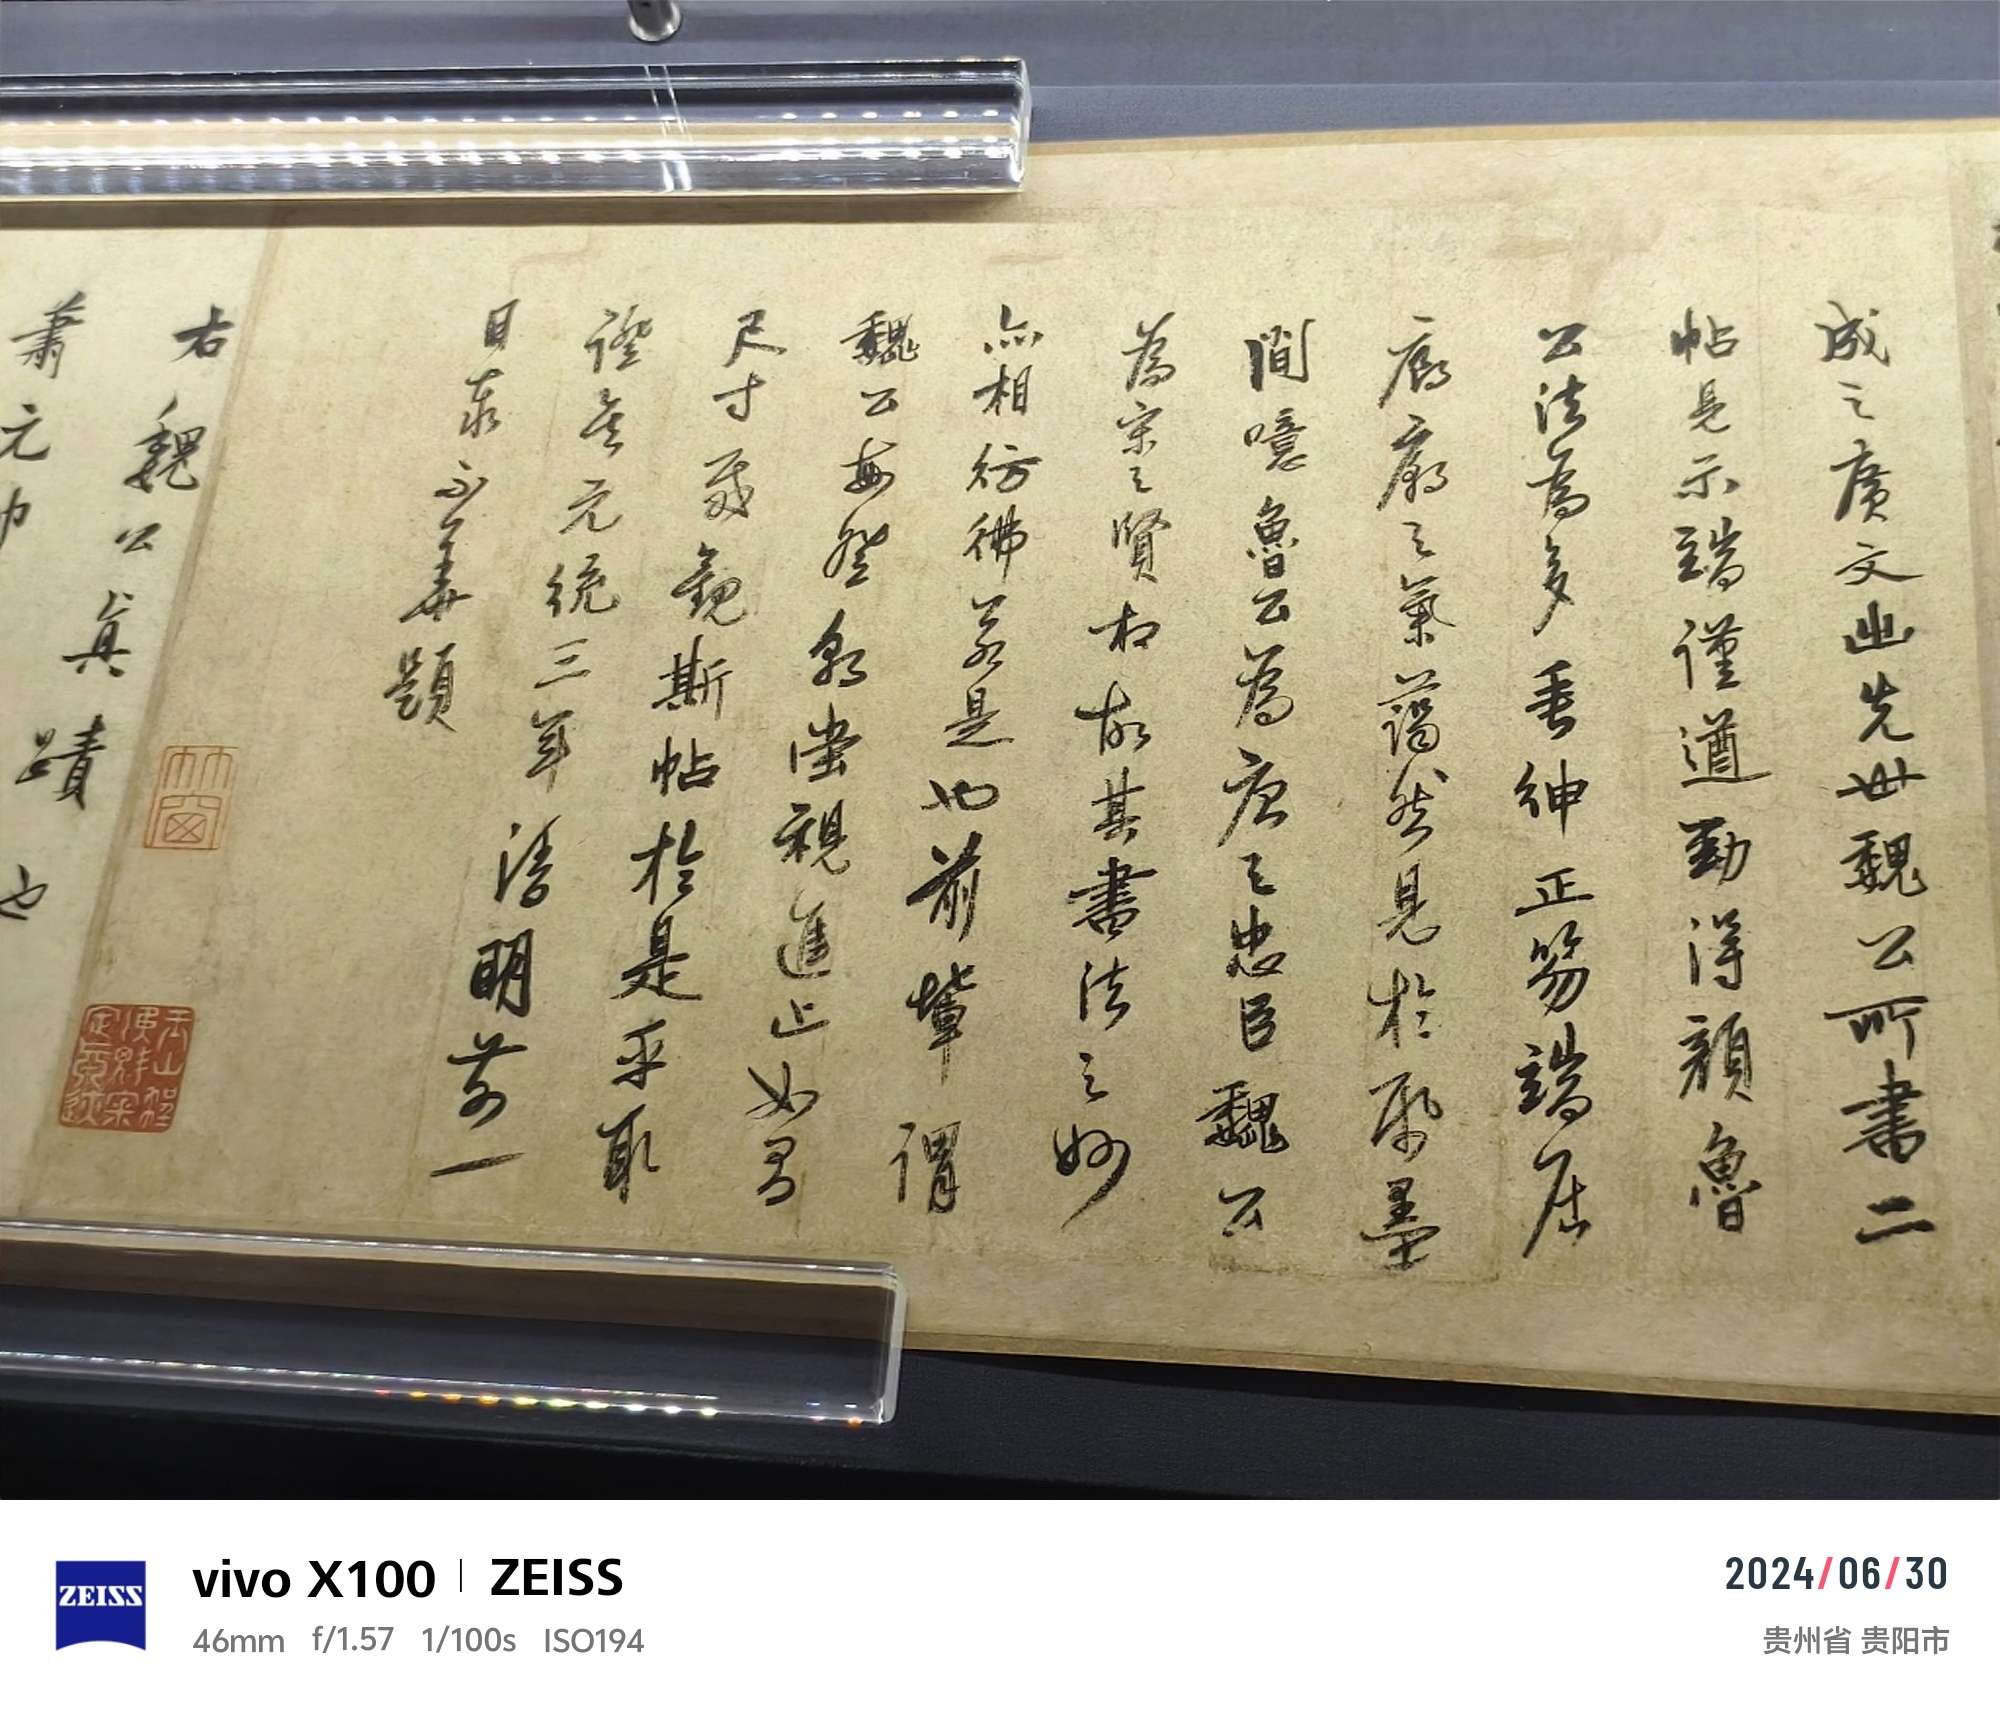 成之廣文出先世魏公所書二
帖見示端謹遒勁得顔魯
公法為多垂紳正笏端居
廊廟之氣藹然見於墨
間噫魯公為唐之忠臣魏公
為宋之賢相故其書法之妙
亦相彷彿若是也前輩謂
魏公每登朝堂視進止如有
尺寸哉觀斯帖於是乎取
證焉元統三年清明前一
日泰不華題
右魏公真蹟
蕭元也
ZEISS
vivo X100 | ZEISS
46mm f/1.57 1/100s ISO194
2024/06/30
贵州省 贵阳市